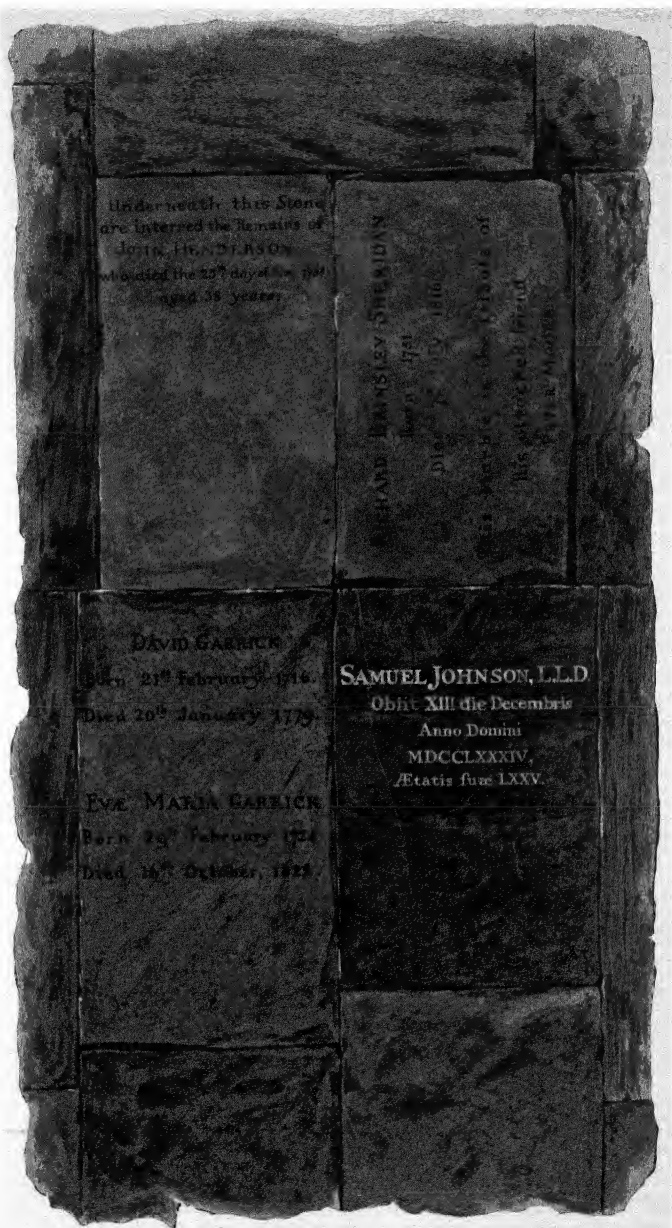 Underneath this Stone
are interred the Remains of
JOHN HENDERSON
who died the 25th day of
aged 38 years.
RICHARD BRINSLEY SHERIDAN
Born 1751
Died 7th July 1816
This Marble is the Tribute of
his attached Friend
PETER MOORE
DAVID GARRICK
Born 21st February 1716.
Died 20th January 1779.
EVÆ MARIA GARRICK
Born 29th February 1724
Died 16th October, 1822.
SAMUEL JOHNSON, L.L.D.
Obiit XIII die Decembris
Anno Domini
MDCCLXXXIV,
Ætatis suæ LXXV.